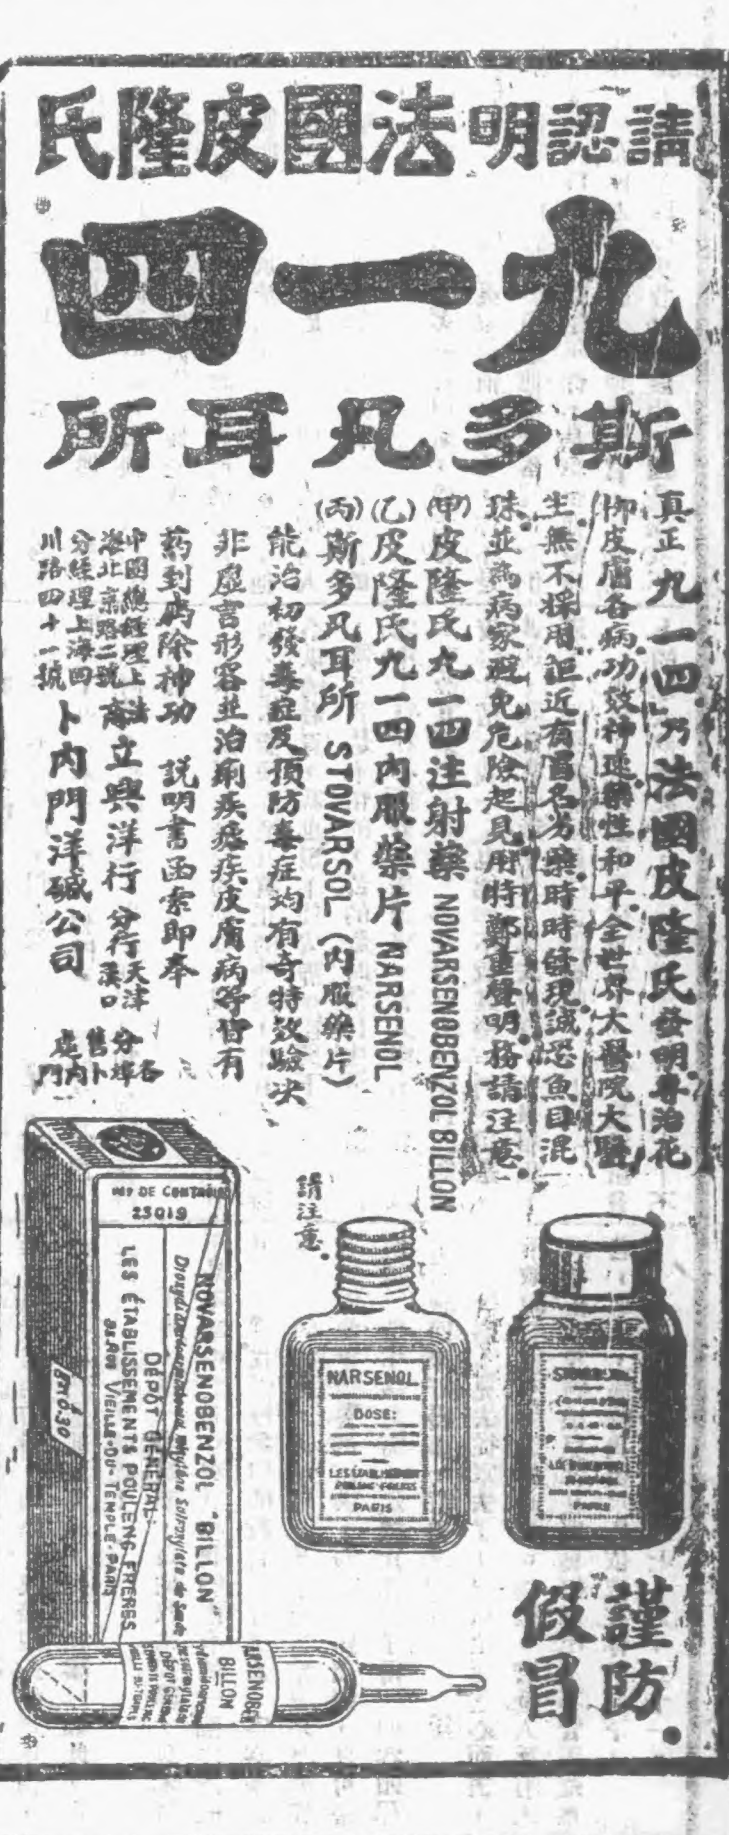 請認明法國皮隆氏
九一四
斯多凡耳所
真正九一四乃法國皮隆氏發明專治花
柳皮膚各病功效神速藥性和平全世界大醫院大醫
生無不採用詎近有冒名劣藥時時發現誠恐魚目混
珠並為病家避免危險起見用特鄭重聲明務請注意
(甲)皮隆氏九一四注射藥 NOVARSENOBENZOL BILLON
(乙)皮隆氏九一四內服藥片 NARSENOL
(丙)斯多凡耳所 STOVARSOL (內服藥片)
能治初發毒症及預防毒症均有奇特效驗決
非虛言形容並治痢疾瘧疾皮膚病等皆有
藥到病除神功 說明書函索即奉
中國總經理上
海北京路二號
法商立興洋行 分行天津漢口
分經理上海四
川路四十一號
卜內門洋碱公司
各埠卜內門
分售處
請注意
謹防
假冒
DE CONTROLE
23019
NOVARSENOBENZOL "BILLON"
DÉPÔT GÉNÉRAL:
LES ÉTABLISSEMENTS POULENC FRÈRES
RUE VIEILLE-DU-TEMPLE-PARIS
0.30
NARSENOL
DOSE:
LES ETABLISSEMENTS
POULENC FRERES
PARIS
PARIS
BILLON